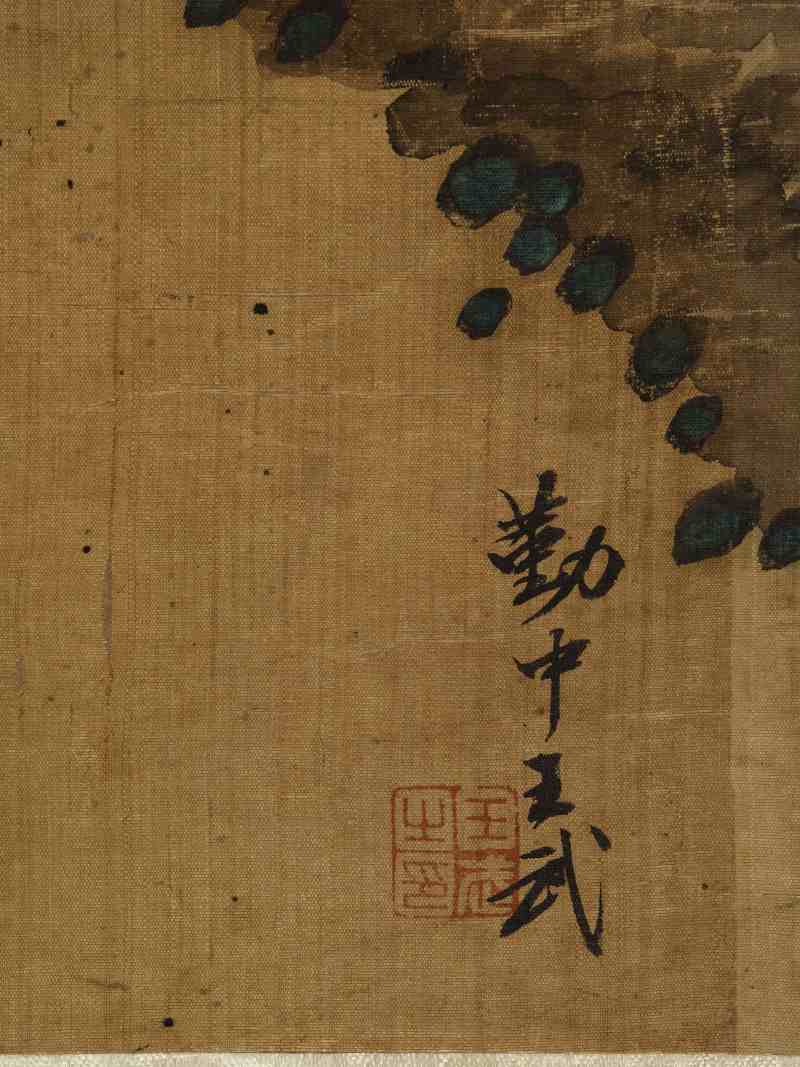 勤中王武
王武之印